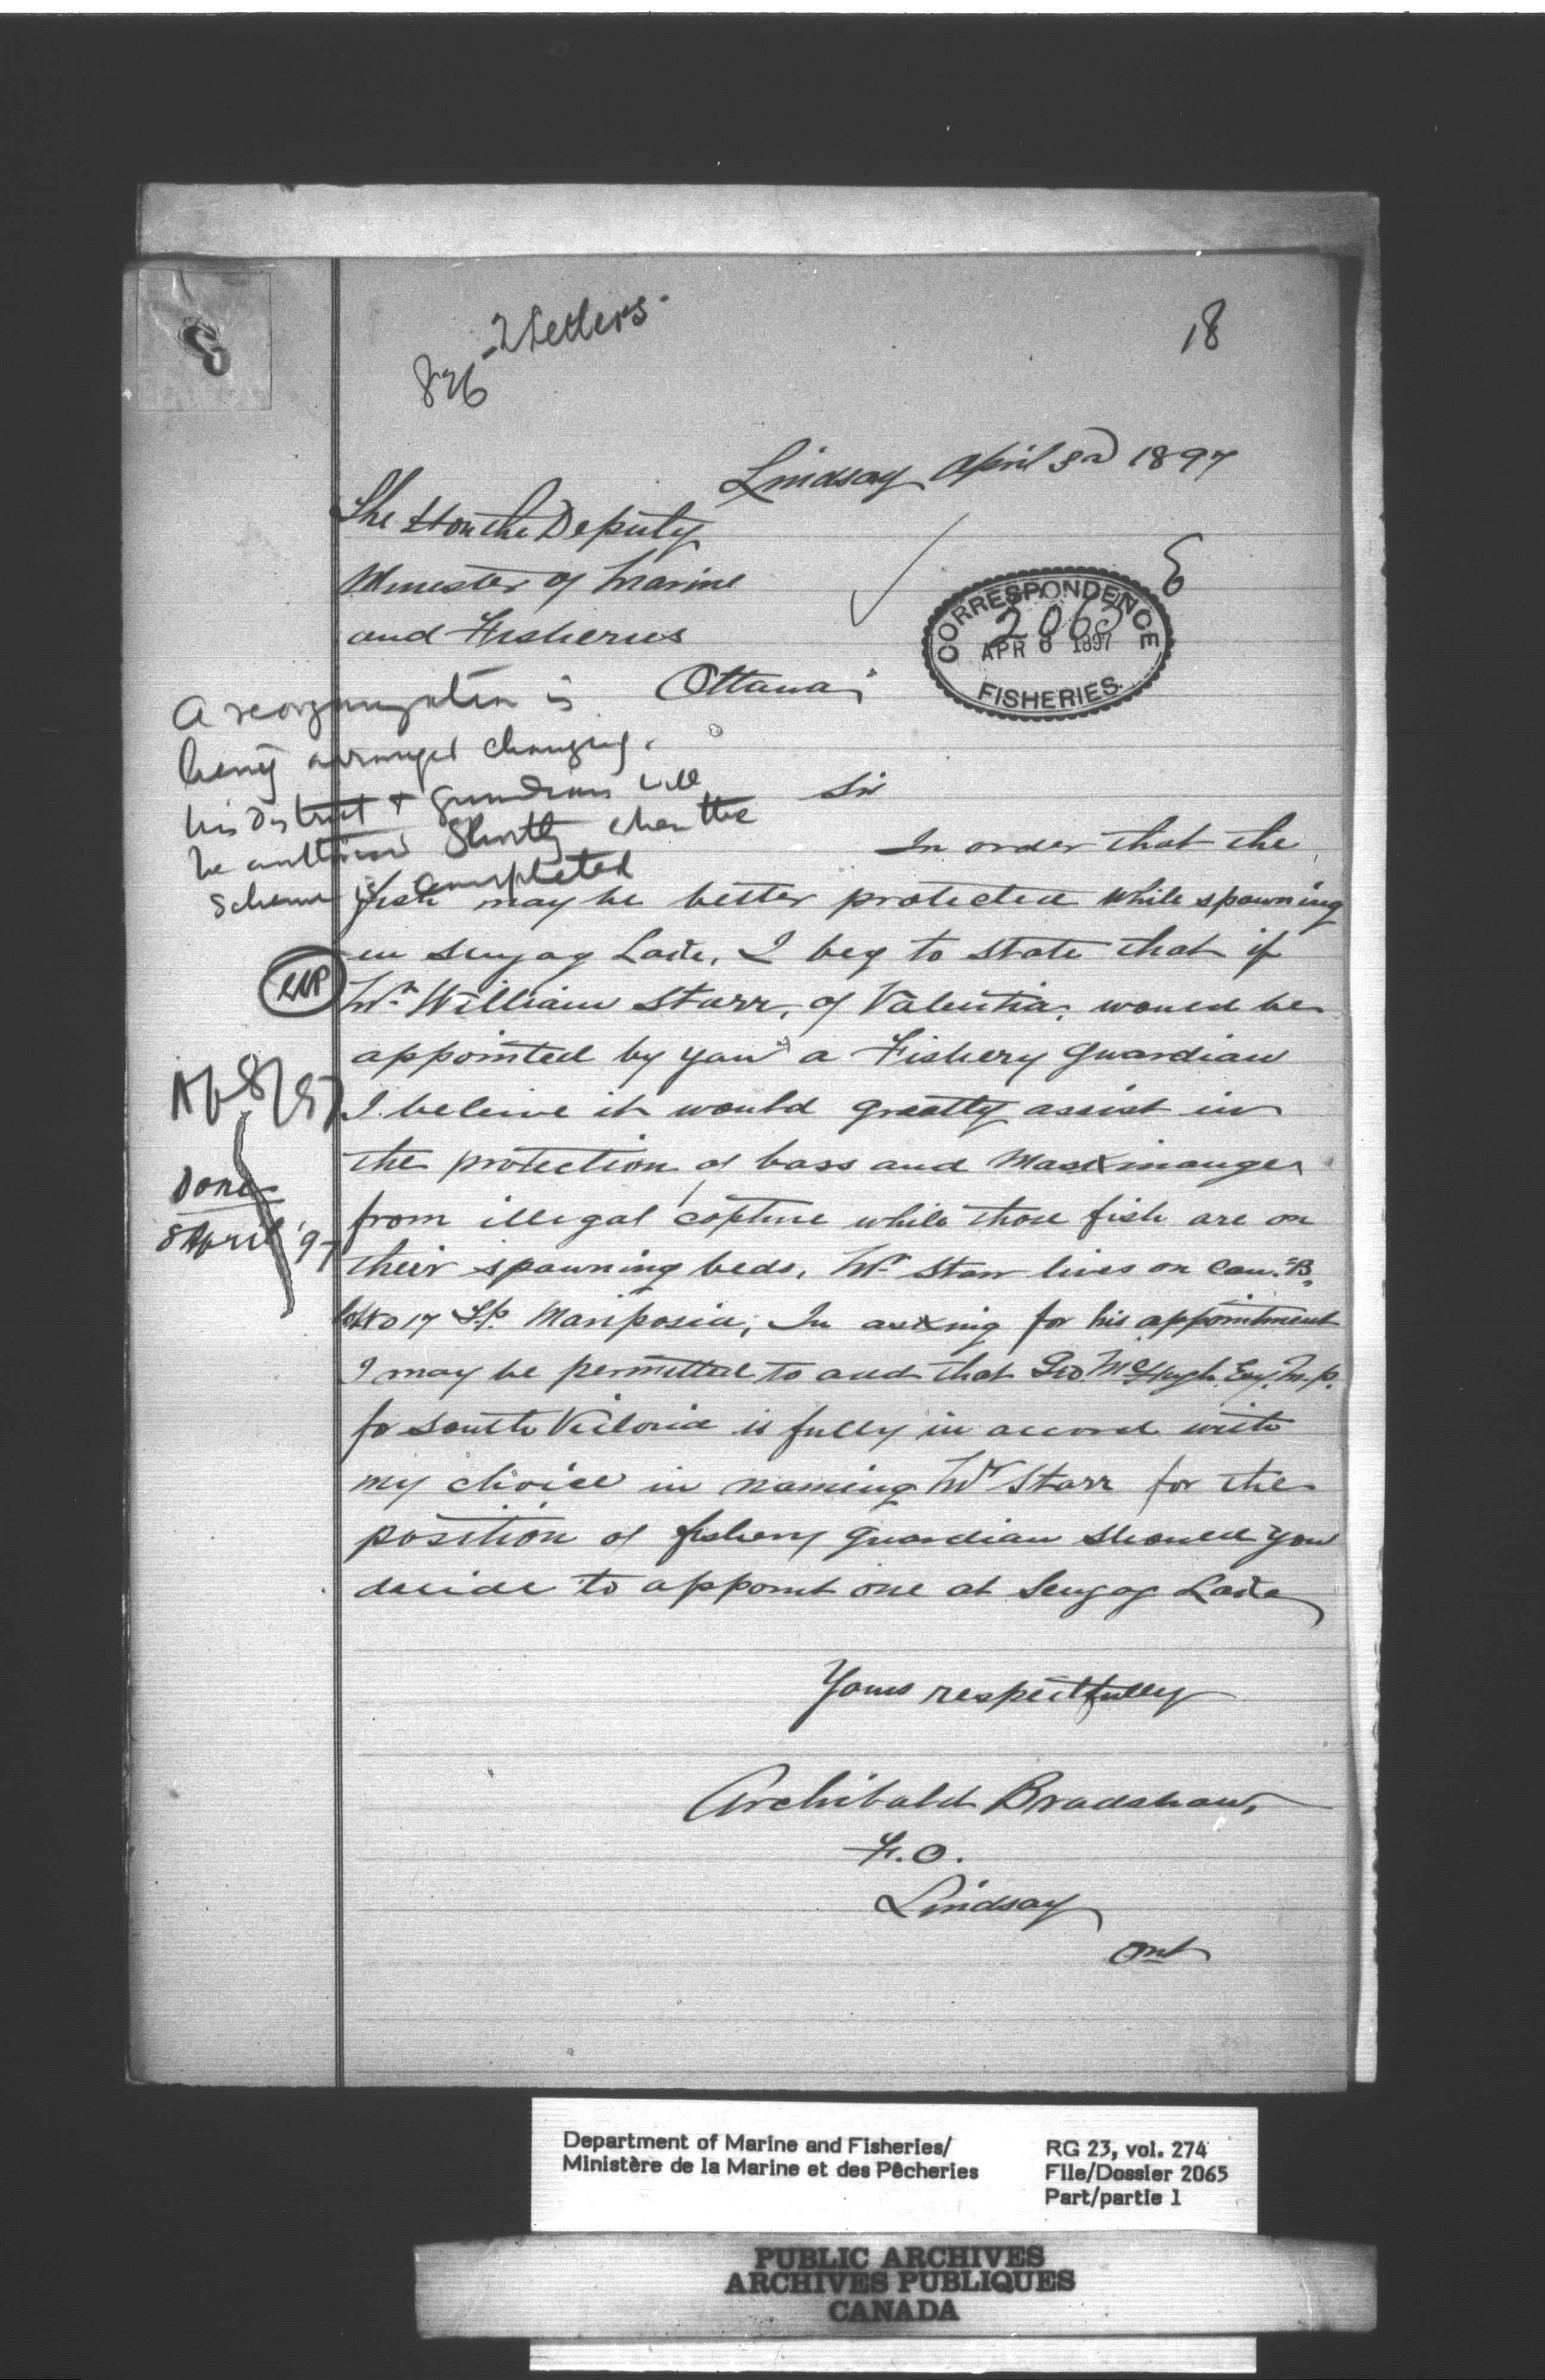 8
826 - 2 Letters.
18
Lindsay April 3rd 1897
The Hon the Deputy
Minister of Marine
and Fisheries
Ottawa
CORRESPONDENCE
2065
APR 6 1897
FISHERIES
A reorganization is
being arranged changing
his District & guardians will
be authorised shortly when the
scheme is completed
Ap 8/97
Done
8 April '97
Sir
In order that the
fish may be better protected while spawning
in Scugog Lake, I beg to state that if
Mr. William Starr, of Valentia, would be
appointed by you a Fishery Guardian
I beleive it would greatly assist in
the protection of bass and Maskinonge
from illegal capture while those fish are on
their spawning beds. Mr Starr lives on Con. "B"
lot No 17 Tp. Mariposia, In asking for his appointment
I may be permitted to add that Geo. McHugh Esq. M.P.
for South Victoria is fully in accord with
my choice in naming Mr Starr for the
position of fishery guardian should you
decide to appoint one at Scugog Lake
Yours respectfully
Archibald Bradshaw,
F.O.
Lindsay
Ont
Department of Marine and Fisheries/
Ministère de la Marine et des Pêcheries
RG 23, vol. 274
File/Dossier 2065
Part/partie 1
PUBLIC ARCHIVES
ARCHIVES PUBLIQUES
CANADA